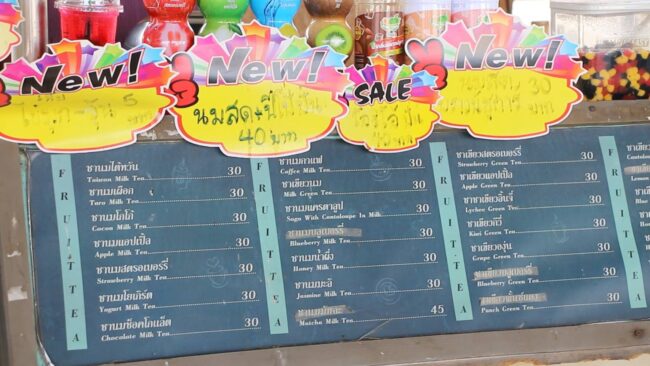 New!
New!
SALE
New!
นมสด+ปีโป้ปั่น
40 บาท
5
บาท
40 บาท
นมสด 30
บาท
FRUITTEA
ชานมไต้หวัน
Taiwan Milk Tea 30
ชานมเผือก
Taro Milk Tea 30
ชานมโกโก้
Cocoa Milk Tea 30
ชานมแอปเปิ้ล
Apple Milk Tea 30
ชานมสตรอเบอร์รี่
Strawberry Milk Tea 30
ชานมโยเกิร์ต
Yogurt Milk Tea 30
ชานมช็อคโกแล็ต
Chocolate Milk Tea 30
FRUITTEA
ชานมคาเฟ่
Coffee Milk Tea 30
ชาเขียวนม
Milk Green Tea 30
ชานมแคนตาลูป
Sagu With Cantaloupe In Milk 30
ชานมบลูเบอร์รี่
Blueberry Milk Tea 30
ชานมน้ำผึ้ง
Honey Milk Tea 30
ชานมมะลิ
Jasmine Milk Tea 30
Matcha Milk Tea 45
FRUITTEA
ชาเขียวสตรอเบอร์รี่
Strawberry Green Tea 30
ชาเขียวแอปเปิ้ล
Apple Green Tea 30
ชาขาวลิ้นจี่
Lychee Green Tea 30
ชาเขียวกีวี่
Kiwi Green Tea 30
ชาเขียวองุ่น
Grape Green Tea 30
ชาเขียวบลูเบอร์รี่
Blueberry Green Tea 30
ชาเขียวพันช์
Punch Green Tea 30
FRUITTEA